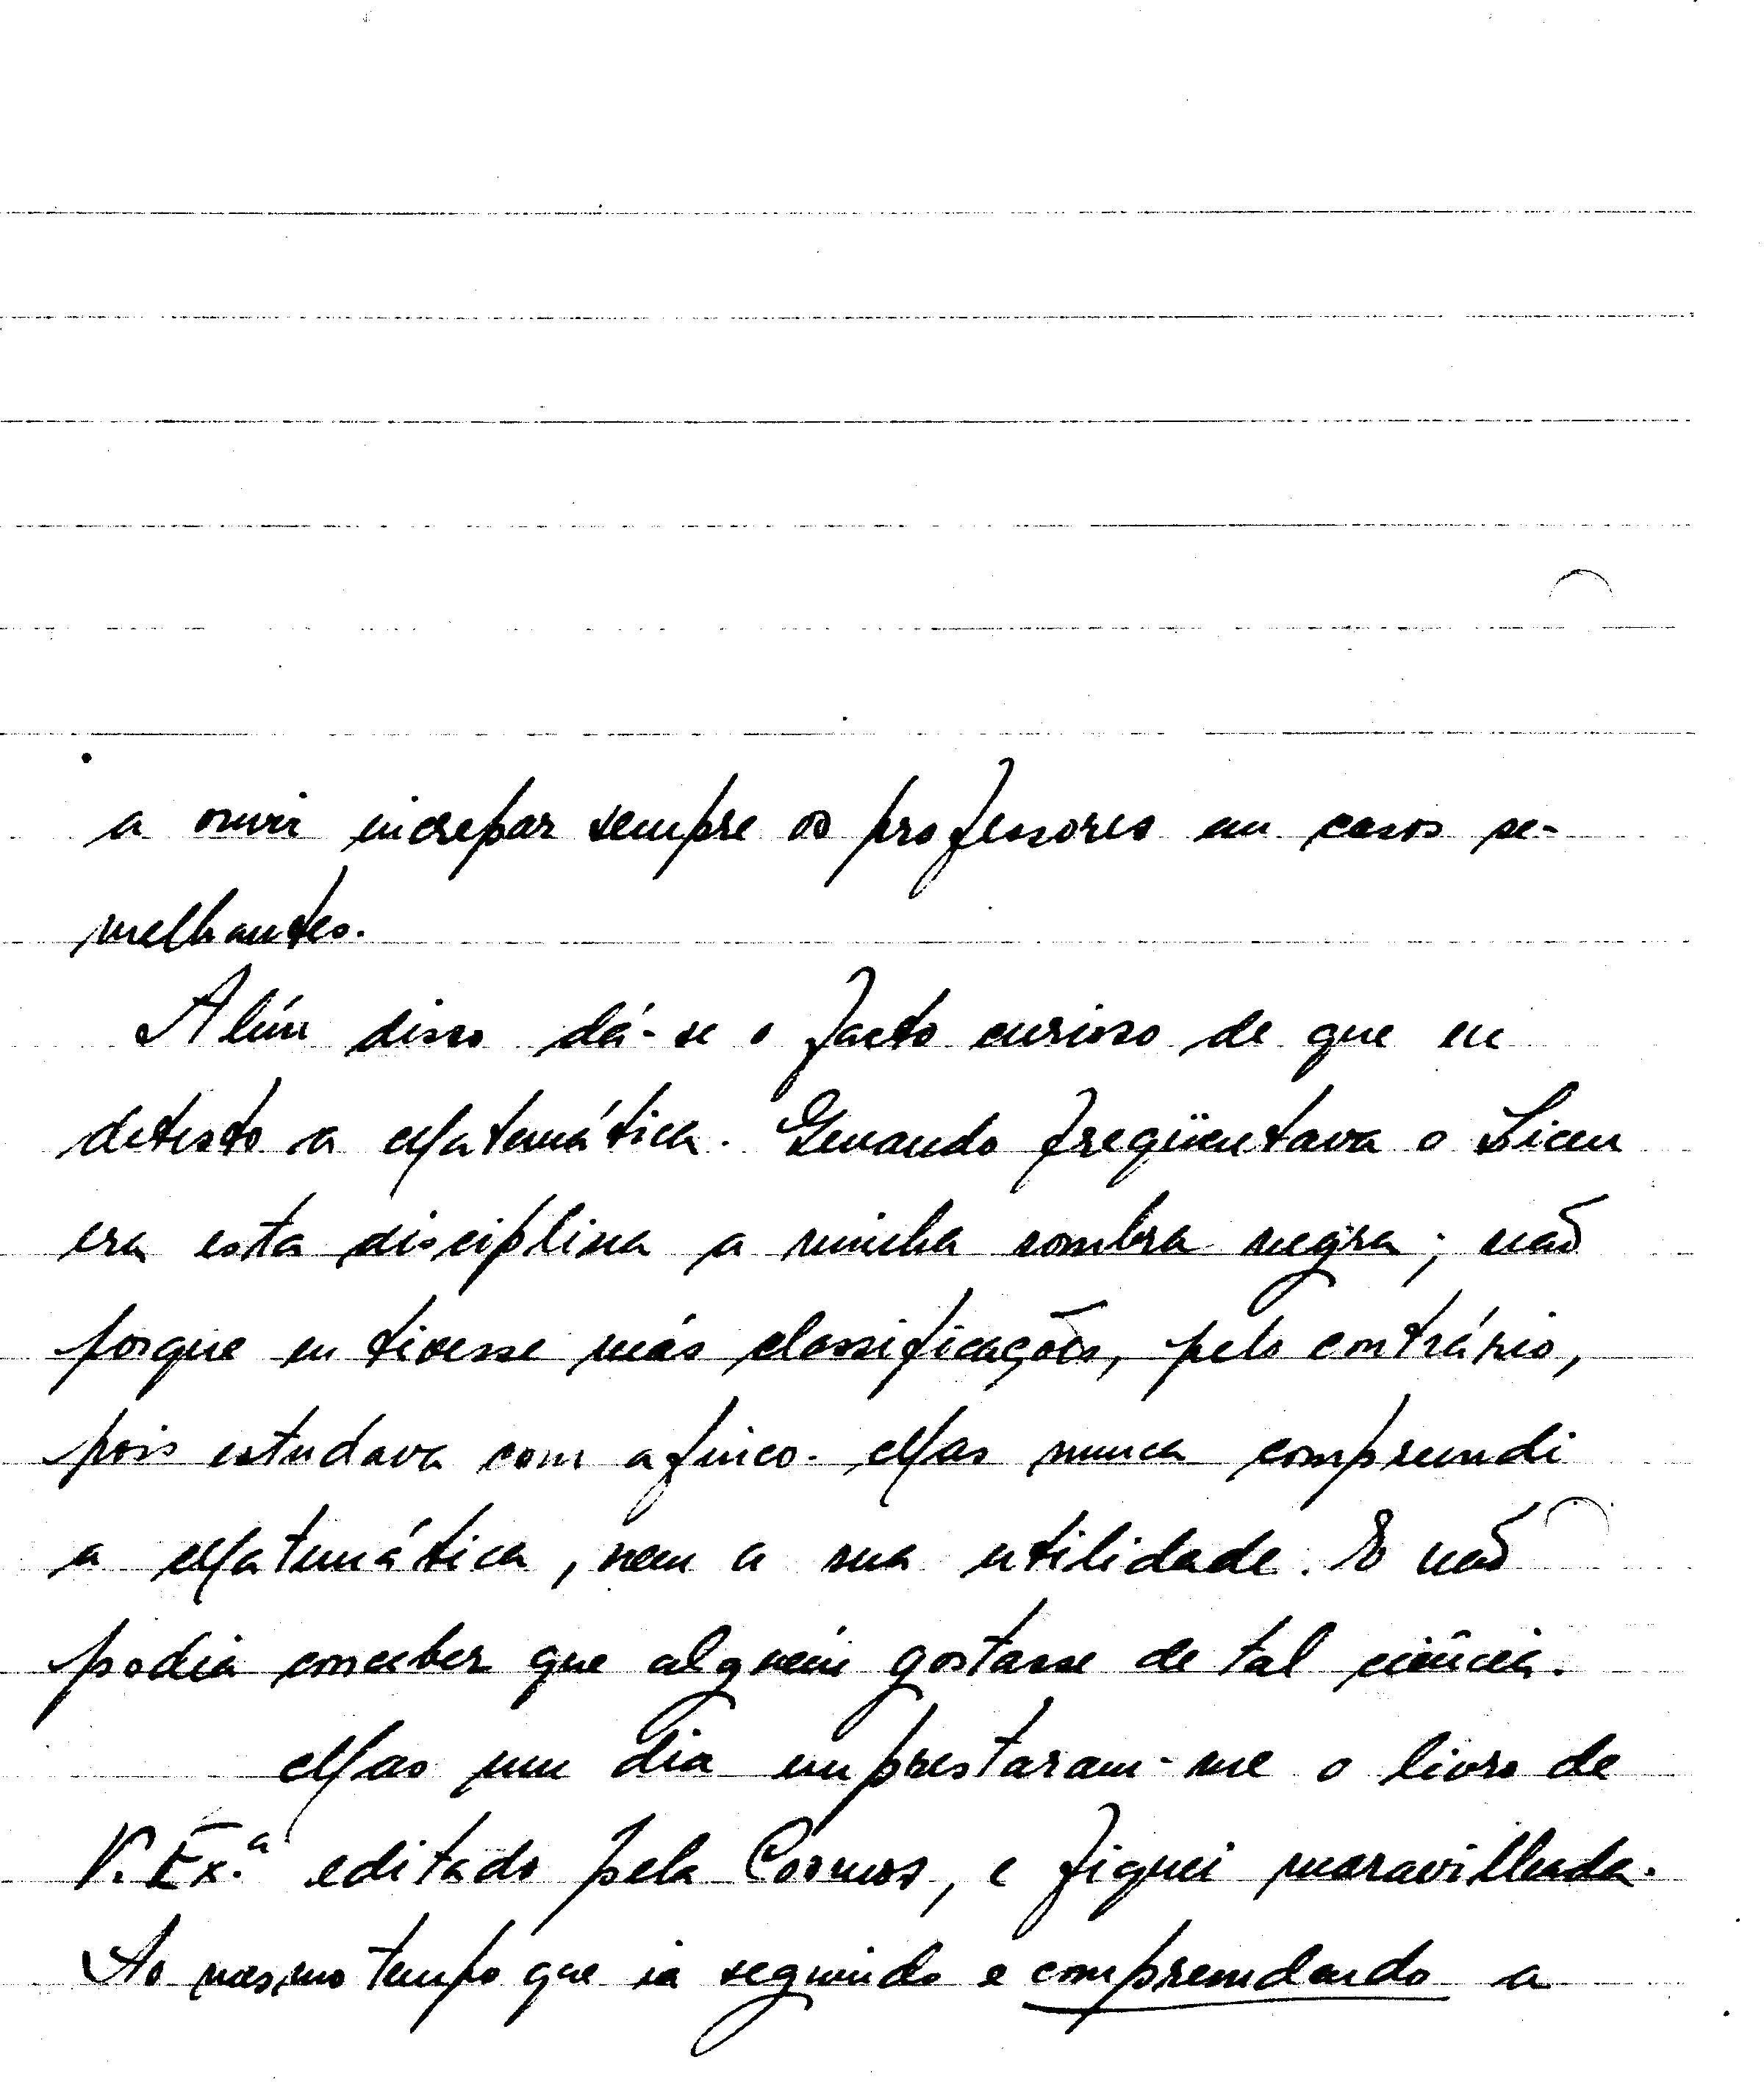 a ouvir increpar sempre os professores em casos se-
melhantes.
Além disso dá-se o facto curioso de que eu
detesto a Matemática. Quando freqüentava o Liceu
era esta disciplina a minha sombra negra; não
porque eu tivesse más classificações, pelo contrário,
pois estudava com afinco. Mas nunca compreendi
a Matemática, nem a sua utilidade. E não
podia conceber que alguém gostasse de tal ciência.
Mas um dia emprestaram-me o livro de
V. Ex.ª editado pela Cosmos, e fiquei maravilhada.
Ao mesmo tempo que ia seguindo e compreendendo a